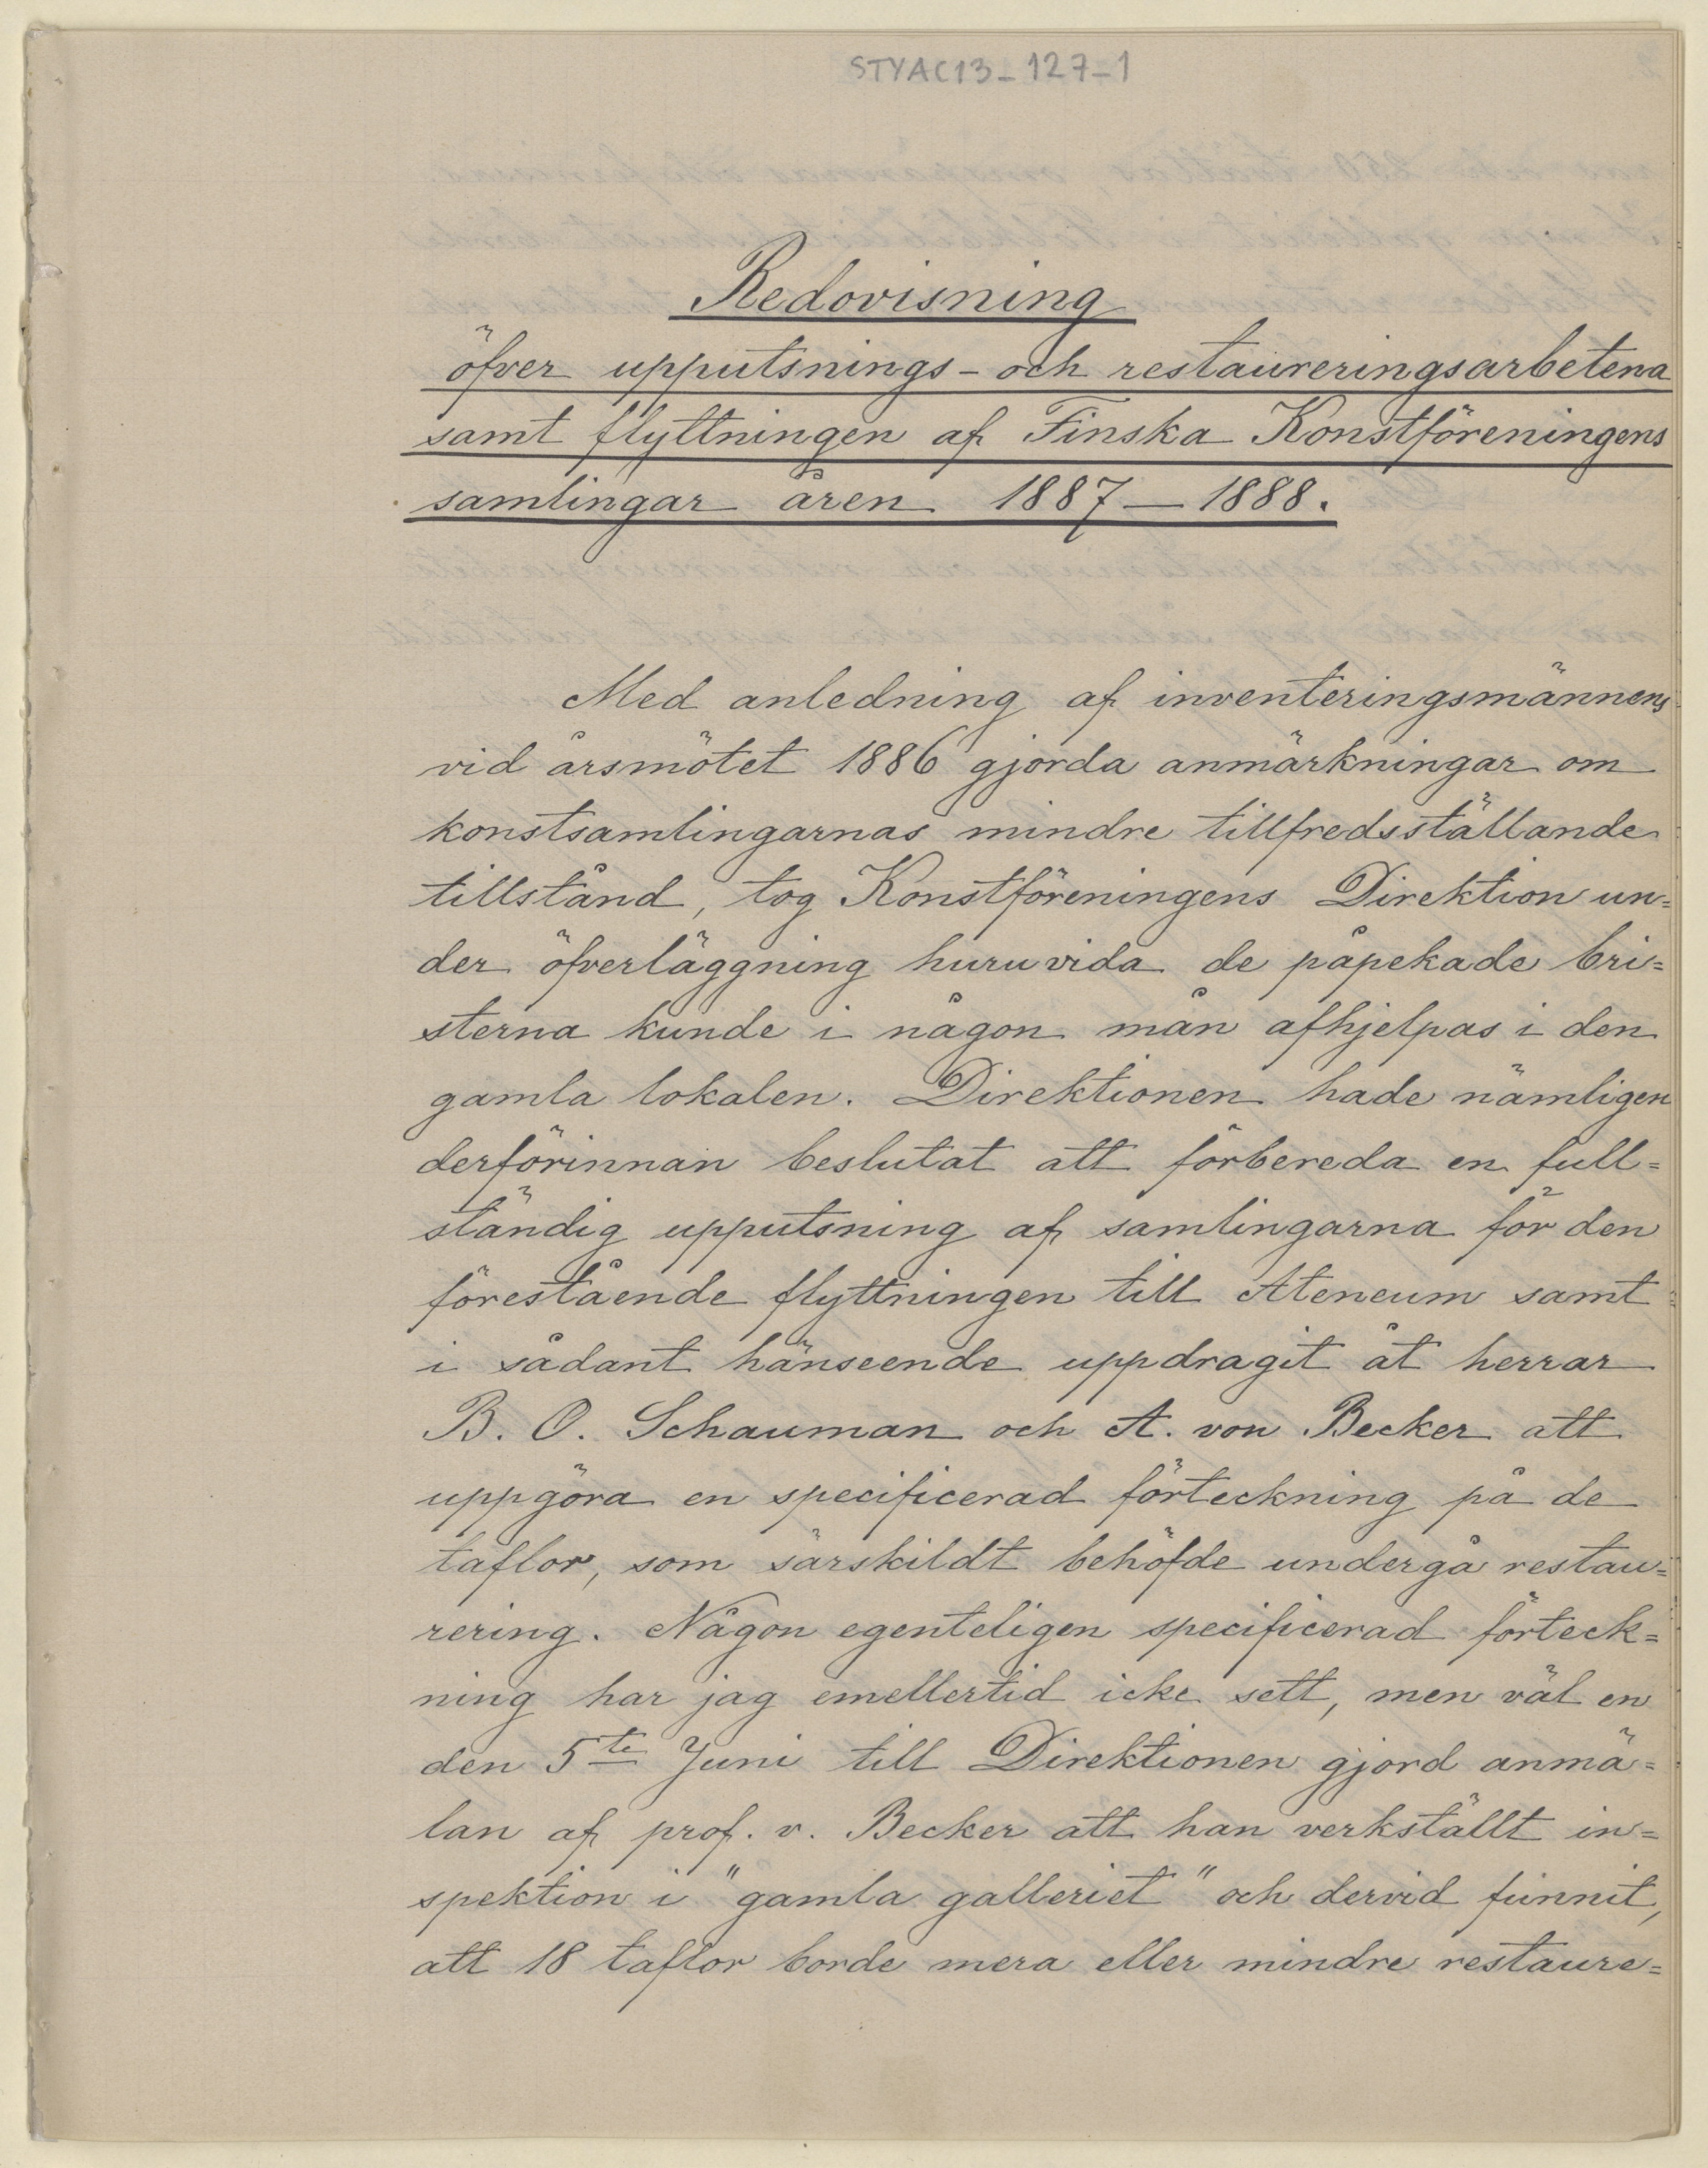 STYAC13-127-1
Redovisning
öfver upputsnings- och restaureringsarbetena
samt flyttningen af Finska Konstföreningens
samlingar åren 1887—1888.
Med anledning af inventeringsmännens
vid årsmötet 1886 gjorda anmärkningar om
konstsamlingarnas mindre tillfredsställande
tillstånd, tog Konstföreningens Direktion un=
der öfverläggning huruvida de påpekade bri=
sterna kunde i någon mån afhjelpas i den
gamla lokalen. Direktionen hade nämligen
derförinnan beslutat att förbereda en full=
ständig upputsning af samlingarna för den
förestående flyttningen till Ateneum samt
i sådant hänseende uppdragit åt herrar
B. O. Schauman och A. von Becker att
uppgöra en specificerad förteckning på de
taflor, som särskildt behöfde undergå restau=
rering. Någon egenteligen specificerad förteck=
ning har jag emellertid icke sett, men väl en
den 5te Juni till Direktionen gjord anmä=
lan af prof. v. Becker att han verkställt in=
spektion i "gamla galleriet" och dervid funnit,
att 18 taflor borde mera eller mindre restaure=